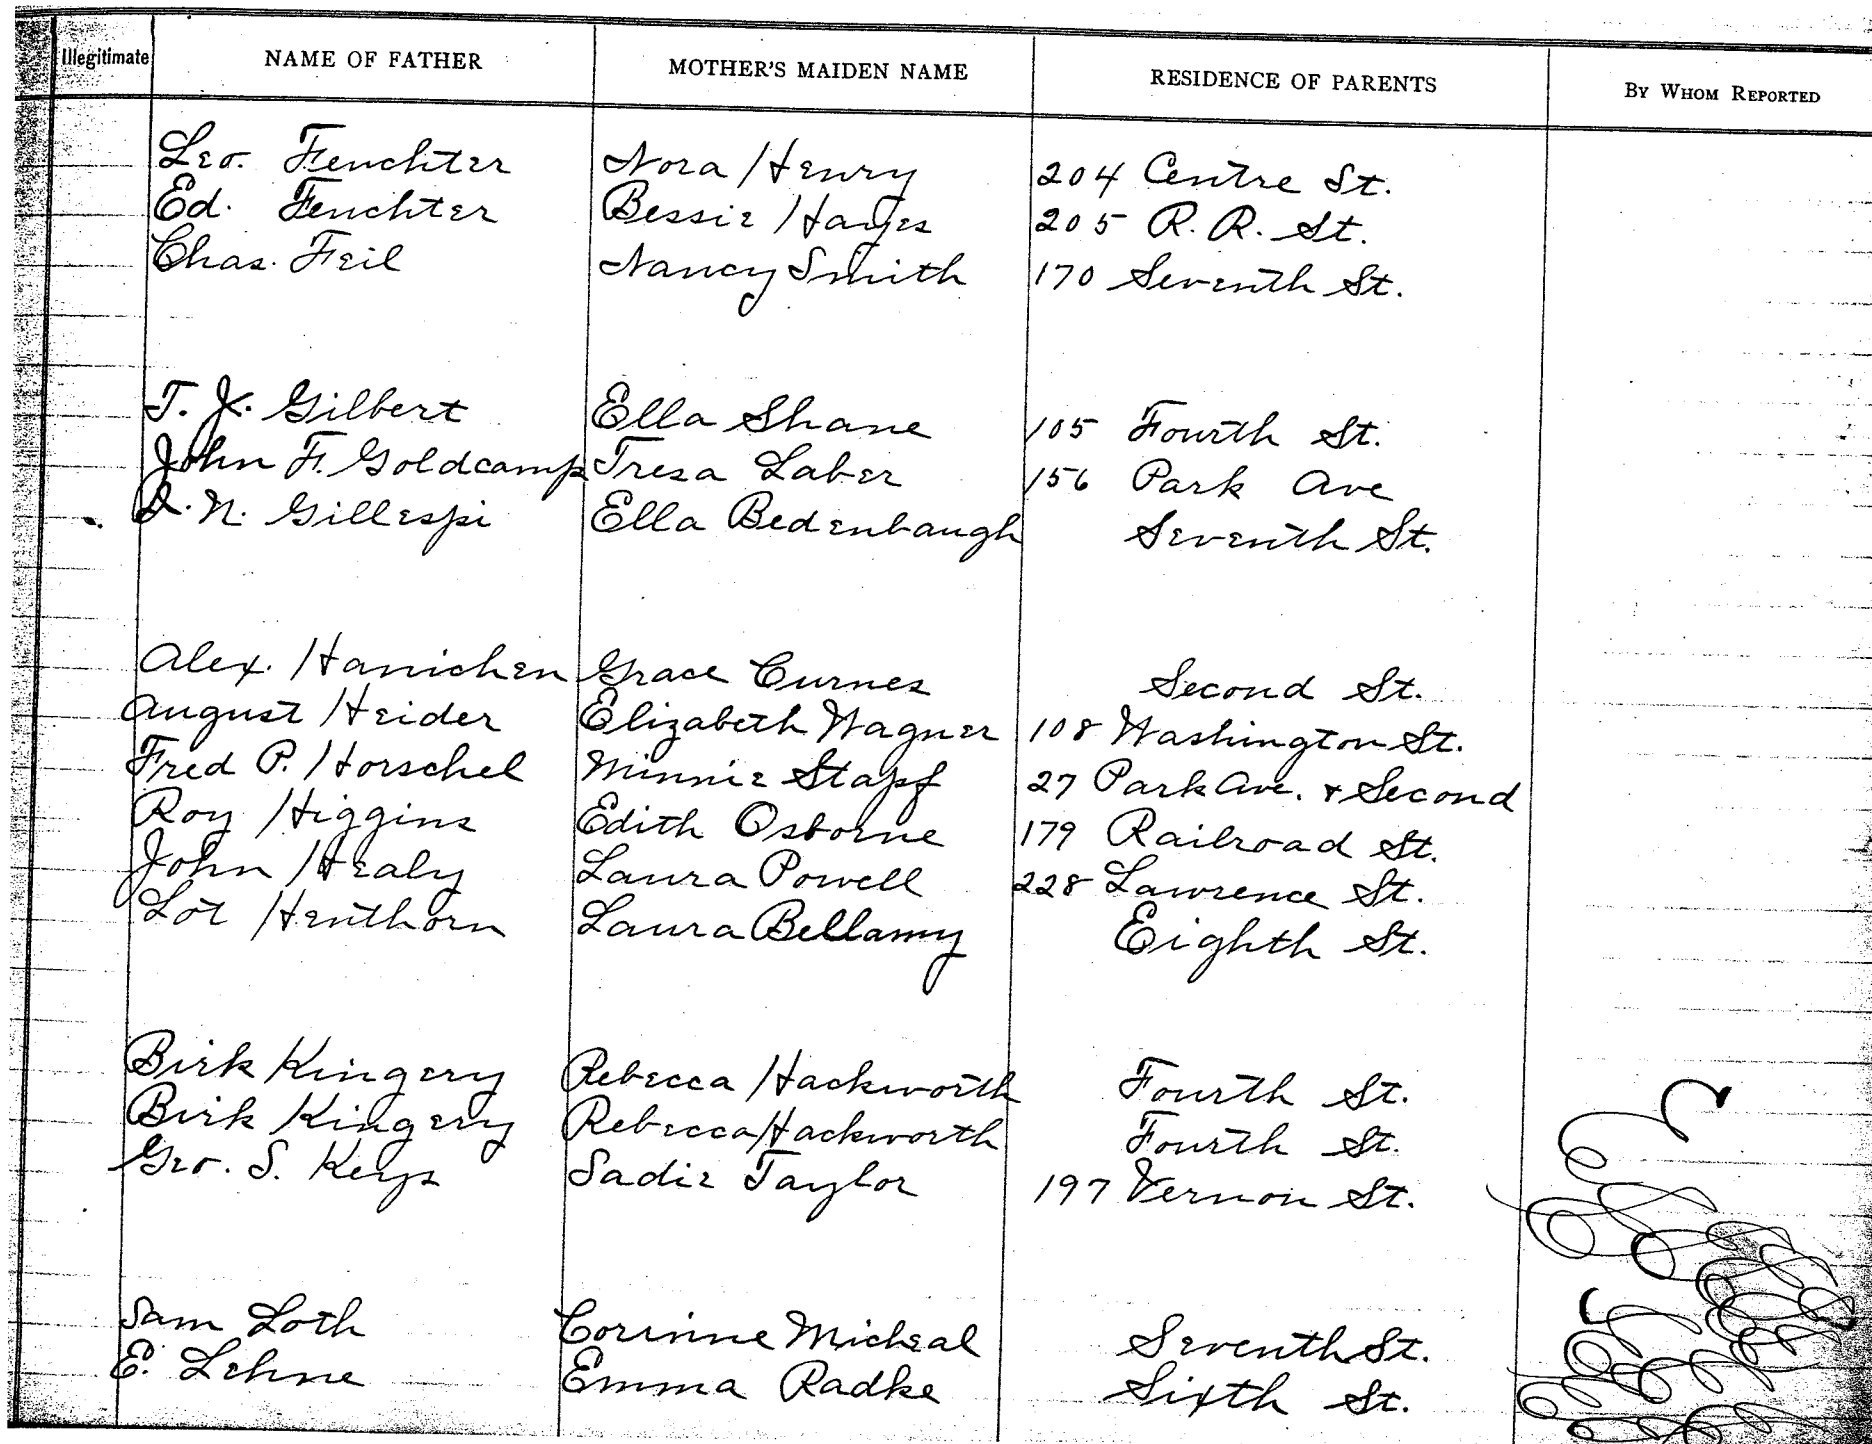 Illegitimate NAME OF FATHER MOTHER'S MAIDEN NAME RESIDENCE OF PARENTS BY WHOM REPORTED
Leo. Feuchter Nora Henry 204 Centre St.
Ed. Feuchter Bessie Hayes 205 R. R. St.
Chas. Feil Nancy Smith 170 Seventh St.
T. J. Gilbert Ella Shane 105 Fourth St.
John F. Goldcamp Tresa Laber 156 Park Ave
N. Gillespi Ella Bedenbaugh Seventh St.
Alex. Hanichen Grace Curnes Second St.
August Heider Elizabeth Wagner 108 Washington St.
Fred P. Horschel Minnie Stapf 27 Park Ave. & Second
Roy Higgins Edith Osborne 179 Railroad St.
John Healy Laura Powell 228 Lawrence St.
Lot Henthorn Laura Bellamy Eighth St.
Birk Kingery Rebecca Hackworth Fourth St.
Birk Kingery Rebecca Hackworth Fourth St.
Geo. S. Keys Sadie Taylor 197 Vernon St.
Sam Loth Corinne Micheal Seventh St.
E. Lehne Emma Radke Sixth St.